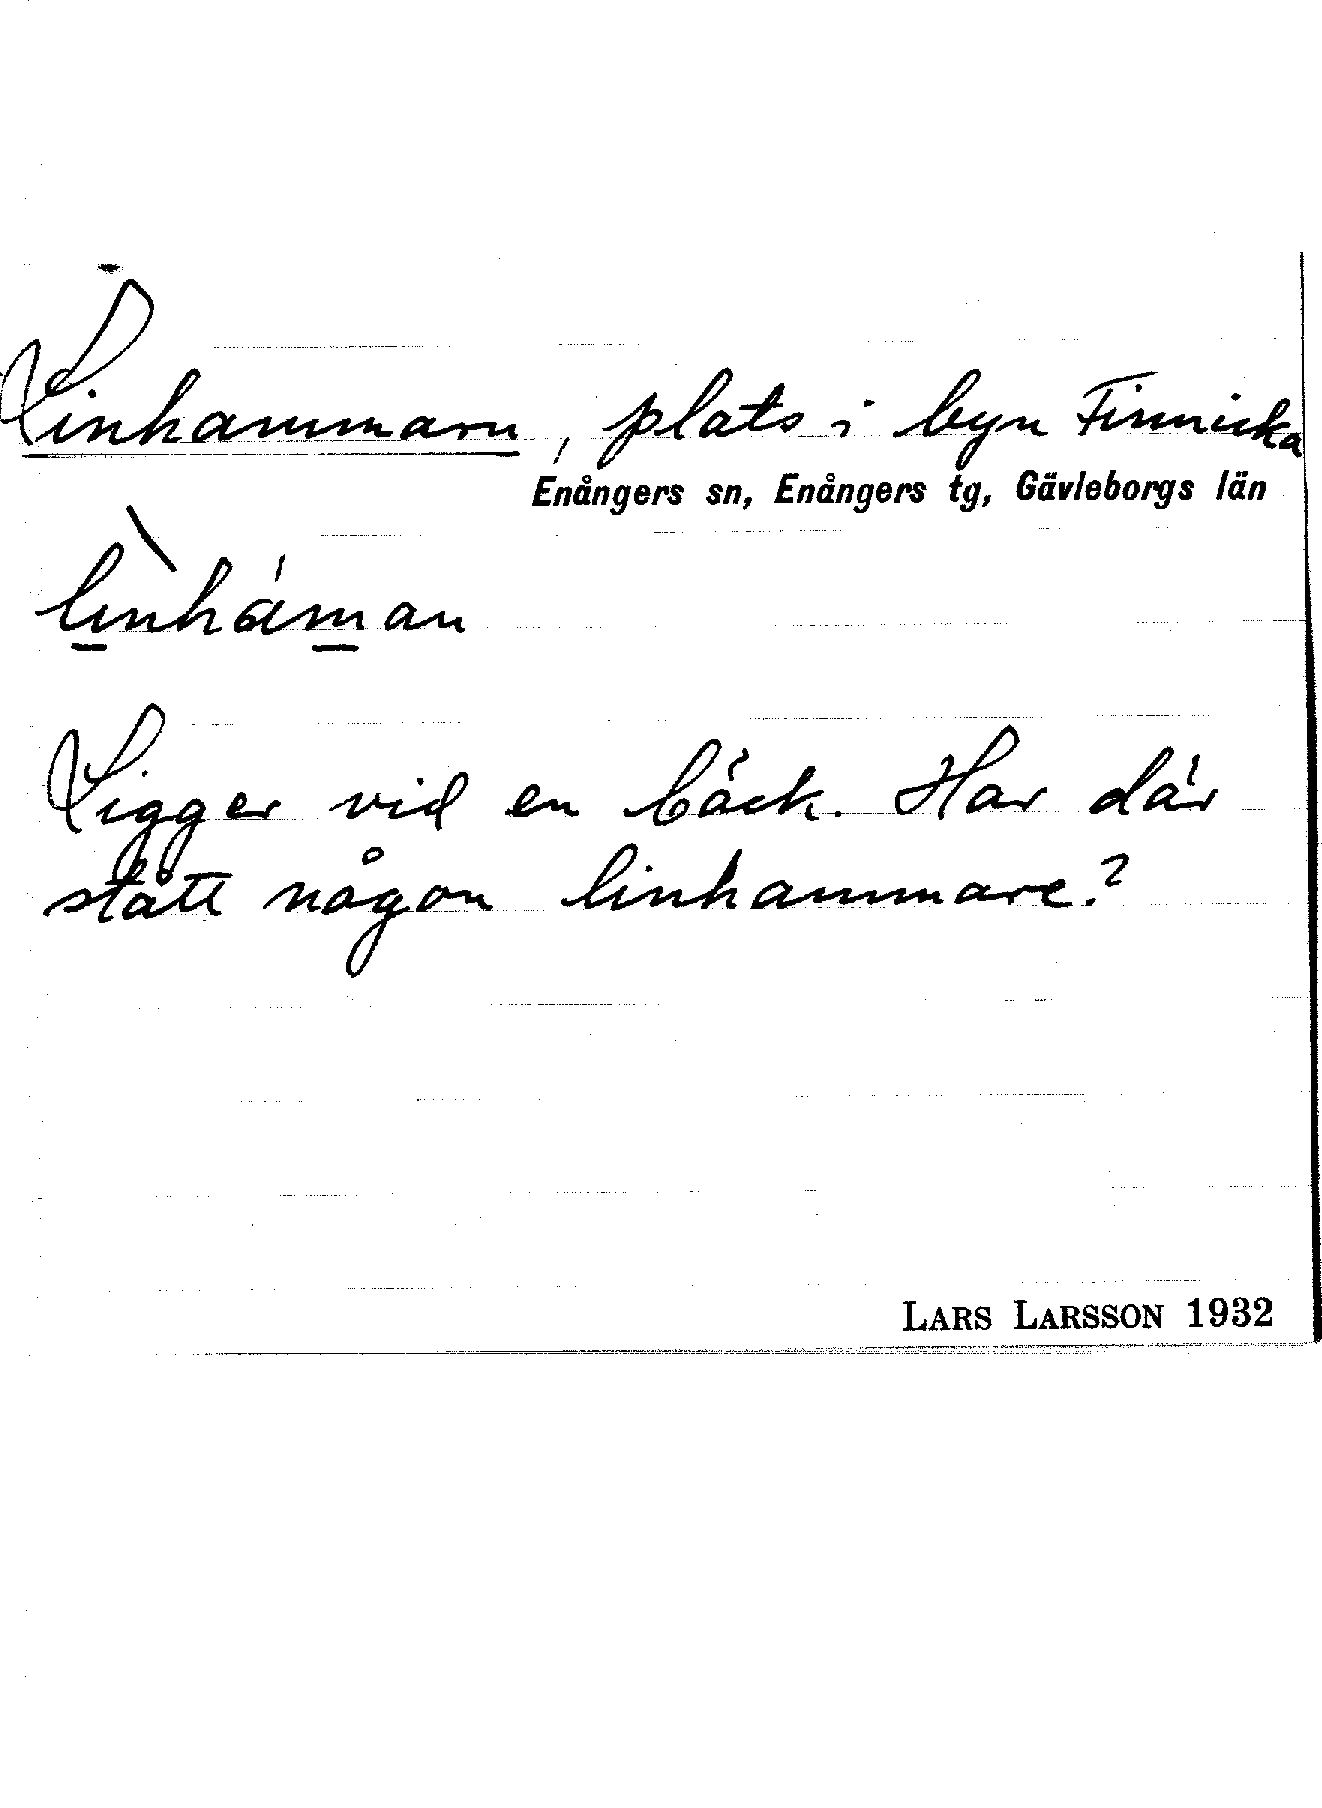 Linhammarn, plats i byn Finnicka
Enångers sn, Enångers tg, Gävleborgs län
lìnháman
Ligger vid en bäck. Har där
stått någon linhammare?
LARS LARSSON 1932